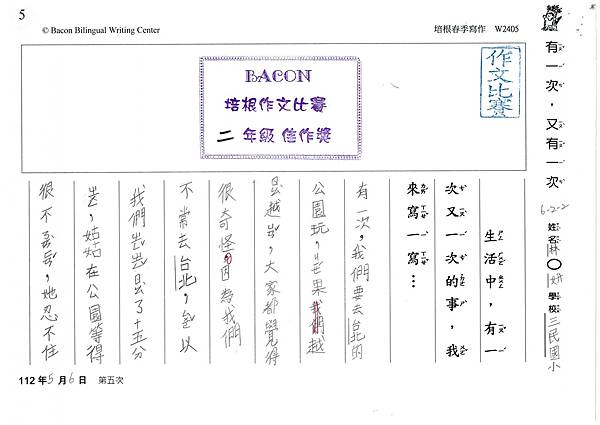 5
© Bacon Bilingual Writing Center
培根春季寫作 W2405
有一次，又有一次
6-2-2 姓名 林○妍 學校 三民國小
作文比賽
BACON
培根作文比賽
二 年級 佳作獎
生活中，有一
次又一次的事，我
來寫一寫…
有一次，我們要去台北的
公園玩，果我們越
越，大家都覺得
很奇怪，因為我們
不常去台北，以
我們了十五分
，姑姑在公園等得
很不，她忍不住
112年5月6日 第五次